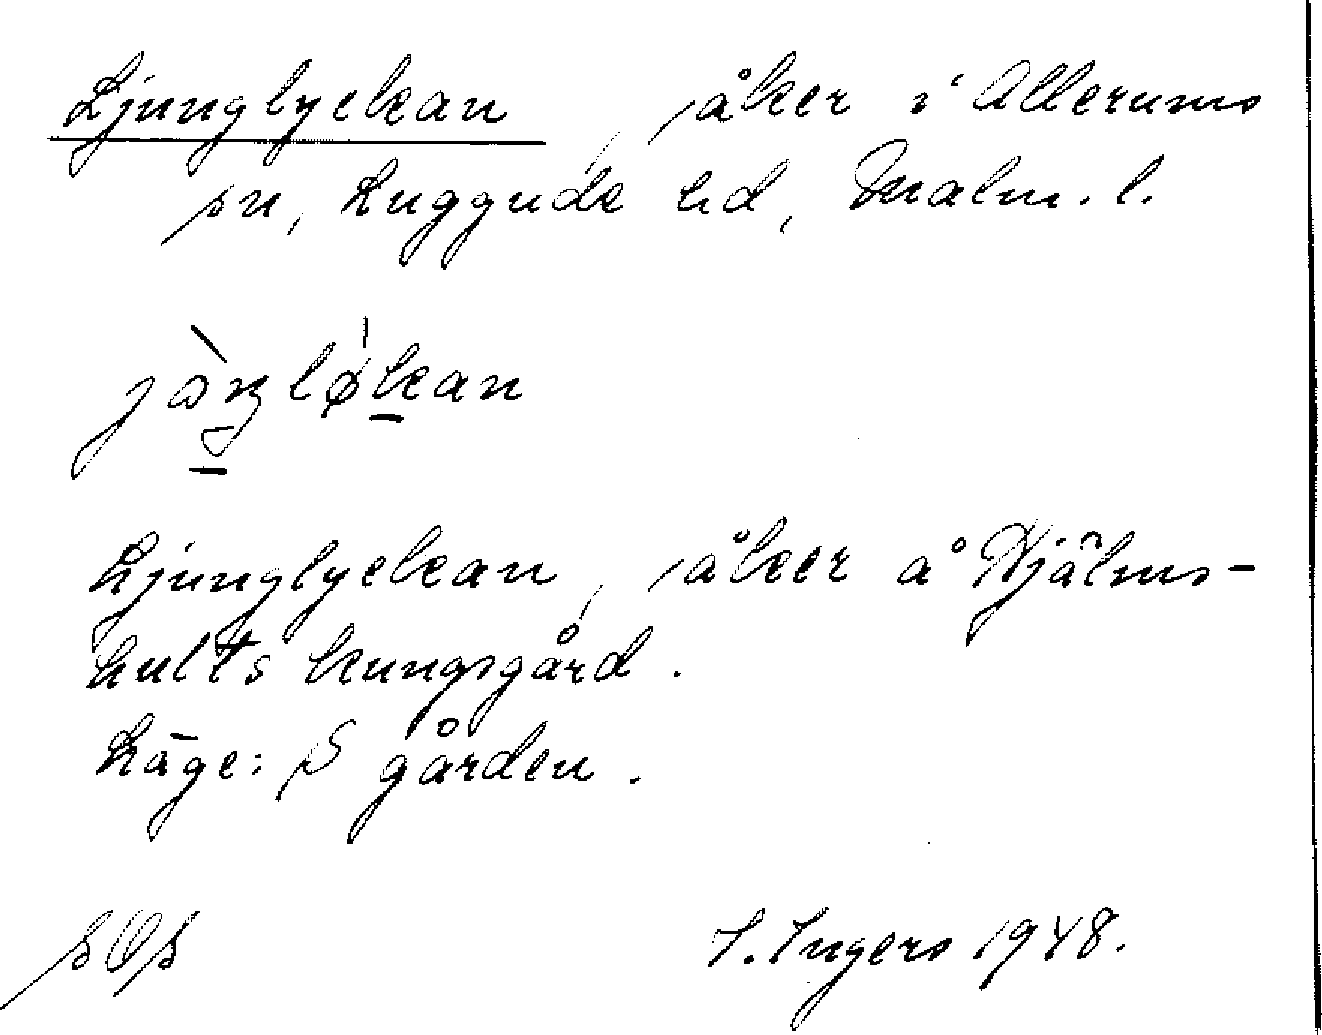 Ljunglyckan, åker i Allerums
sn, Luggude hd, Malm. l.
Ljunglyckan, åker å Hjälms-
hults kungsgård.
Läge: S gården.
I. Ingers 1948.